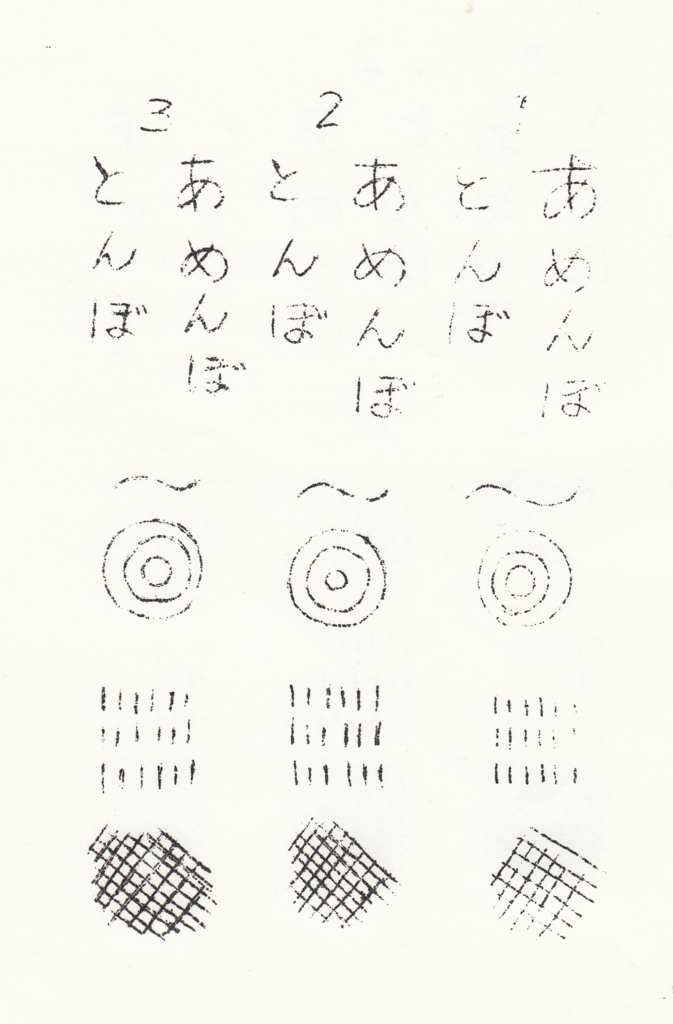 1
あめんぼ
とんぼ
2
あめんぼ
とんぼ
3
あめんぼ
とんぼ